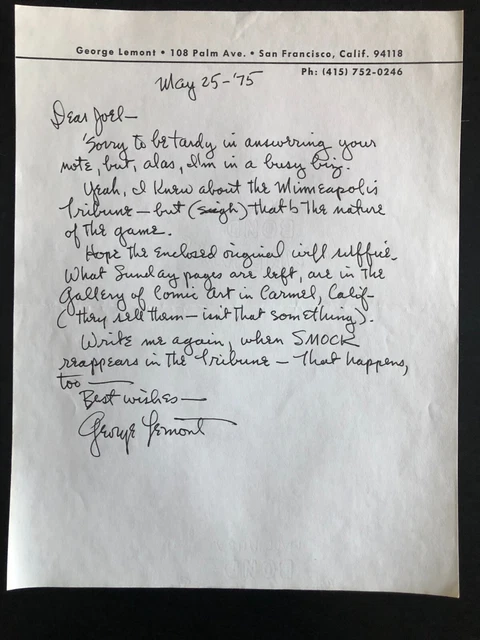 George Lemont • 108 Palm Ave. • San Francisco, Calif. 94118
Ph: (415) 752-0246
May 25-'75
Dear Joel—
'Sorry to be tardy in answering your
note, but, alas, I'm in a busy biz.
Yeah, I knew about the Minneapolis
Tribune — but (sigh) that's the nature
of the game.
Hope the enclosed original will suffice.
What Sunday pages are left, are in the
Gallery of Comic Art in Carmel, Calif—
(they sell them — isn't that something).
Write me again, when SMOCK
reappears in the Tribune — That happens,
too —
Best wishes —
George Lemont